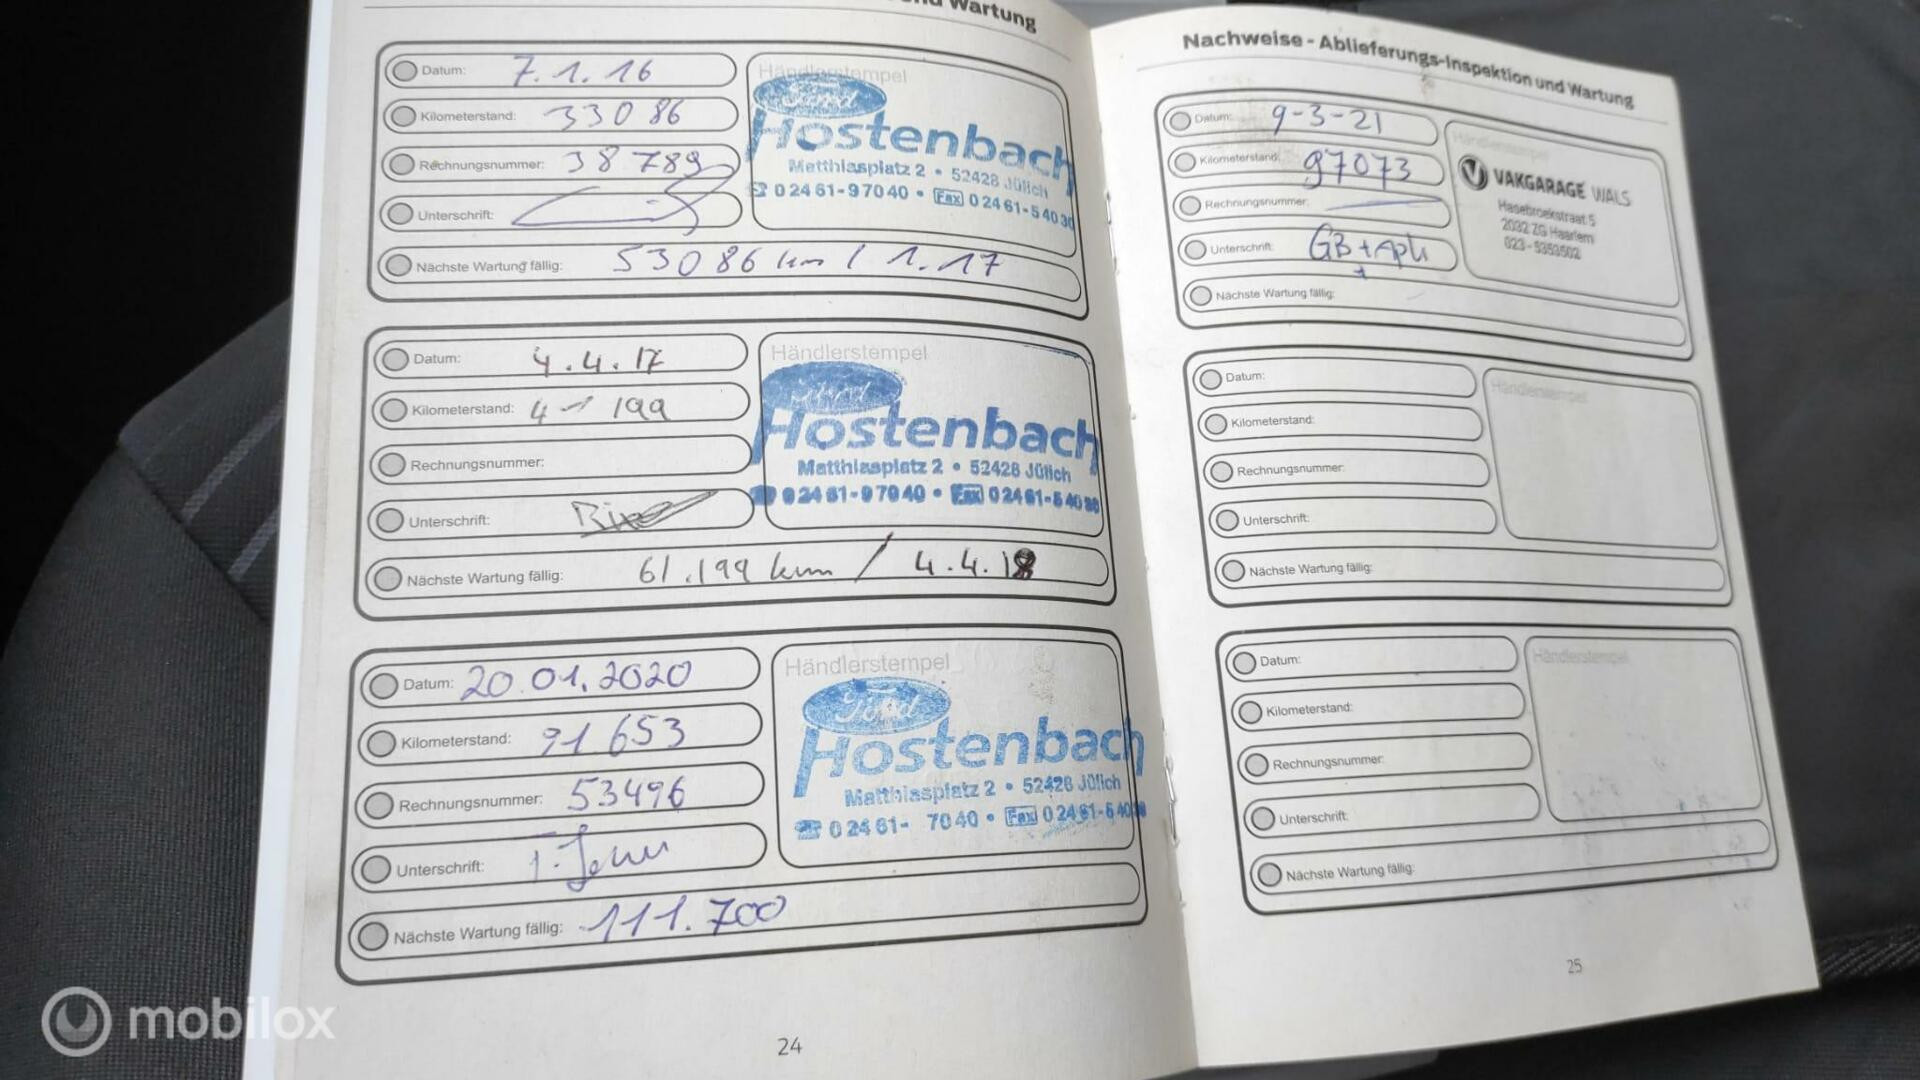 und Wartung
Datum: 7.1.16
Kilometerstand: 33086
Rechnungsnummer: 38789
Unterschrift:
Nächste Wartung fällig: 53086 km / 1.17
Händlerstempel
Ford
Hostenbach
Matthiasplatz 2 • 52428 Jülich
☎ 02461-97040 • Fax 02461-54030
Datum: 4.4.17
Kilometerstand: 41199
Rechnungsnummer:
Unterschrift:
Nächste Wartung fällig: 61.199 km / 4.4.18
Händlerstempel
Ford
Hostenbach
Matthiasplatz 2 • 52428 Jülich
☎ 02461-97040 • Fax 02461-54030
Datum: 20.01.2020
Kilometerstand: 91653
Rechnungsnummer: 53496
Unterschrift:
Nächste Wartung fällig: 111.700
Händlerstempel
Ford
Hostenbach
Matthiasplatz 2 • 52428 Jülich
☎ 02461- 7040 • Fax 02461-540
24
Nachweise - Ablieferungs-Inspektion und Wartung
Datum: 9-3-21
Kilometerstand: 97073
Rechnungsnummer:
Unterschrift: GB + APK
Nächste Wartung fällig:
Händlerstempel
VAKGARAGE WALS
Hasebroekstraat 5
2032 ZG Haarlem
023-5353502
Datum:
Kilometerstand:
Rechnungsnummer:
Unterschrift:
Nächste Wartung fällig:
Händlerstempel
Datum:
Kilometerstand:
Rechnungsnummer:
Unterschrift:
Nächste Wartung fällig:
Händlerstempel
25
mobilox